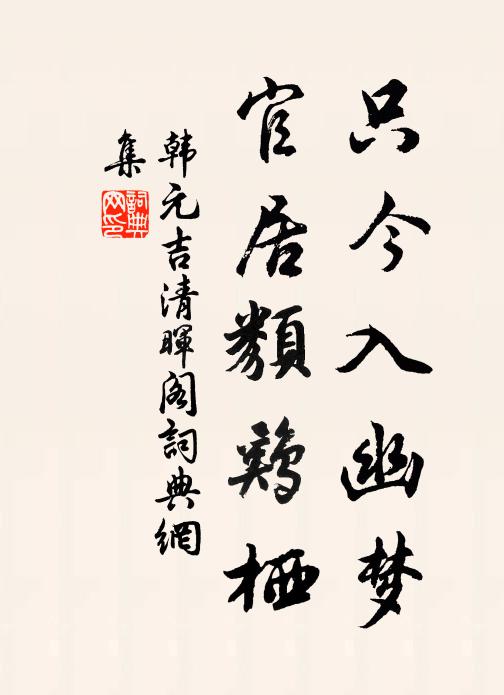 只今入幽梦
官居類鷄栖
韩元吉清暉阁詞典網
集
詞典
网印